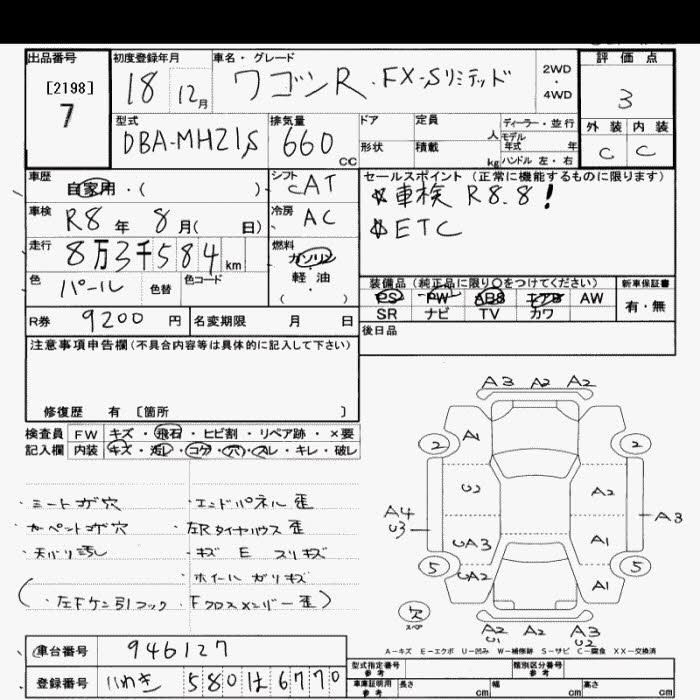 出品番号 初度登録年月 車名・グレード 評価点
[2198]
7
18 12月 ワゴンR・FX-Sリミテッド 2WD・4WD 3
型式 排気量 ドア 定員 人 ディーラー・並行 外装 内装
DBA-MH21S 660 CC 形状 積載 kg モデル年式 年 C C
ハンドル 左・右
車歴 自家用・( ) シフト CAT セールスポイント (正常に機能するものに限ります)
☆車検 R8.8!
☆ETC
車検 R8年 8月( 日) 冷房 AC
走行 8万3千584km 燃料 ガソリン 軽・油 ( ・ )
色 パール 色替 色コード
装備品 (純正品に限り○をつけてください) 新車保証書
PS PW ABS エアB AW 有・無
SR ナビ TV カワ
R券 9200円 名変期限 月 日 後日品
注意事項申告欄(不具合内容等は具体的に記入して下さい)
修復歴 有 〔箇所 〕
検査員 FW キズ・飛石・ヒビ割・リペア跡・×要
記入欄 内装 キズ・汚レ・コゲ・穴・スレ・キレ・破レ
・シートコゲ穴 ・エンドパネル歪
・カーペットコゲ穴 ・左Rタイヤハウス歪
・天バリ汚レ ・キズ E スリキズ
・ホイールガリキズ
(・左Fケン引フック、Fクロスメンバー歪)
A3 A2 A2
2 A1 2
U2 A2
A4 U3 A3
UA3 A1
5 UA2 A1 5
欠 スペ
A2 U1 A2 A3 U2
A-キズ E-エクボ U-凹み W-補修跡 S-サビ C-腐食 XX-交換済
車台番号 946127 型式指定番号 参考 類別区分番号 参考
登録番号 いわき 580 は 6770 車庫証明用 参考 長さ cm 幅 cm 高さ cm